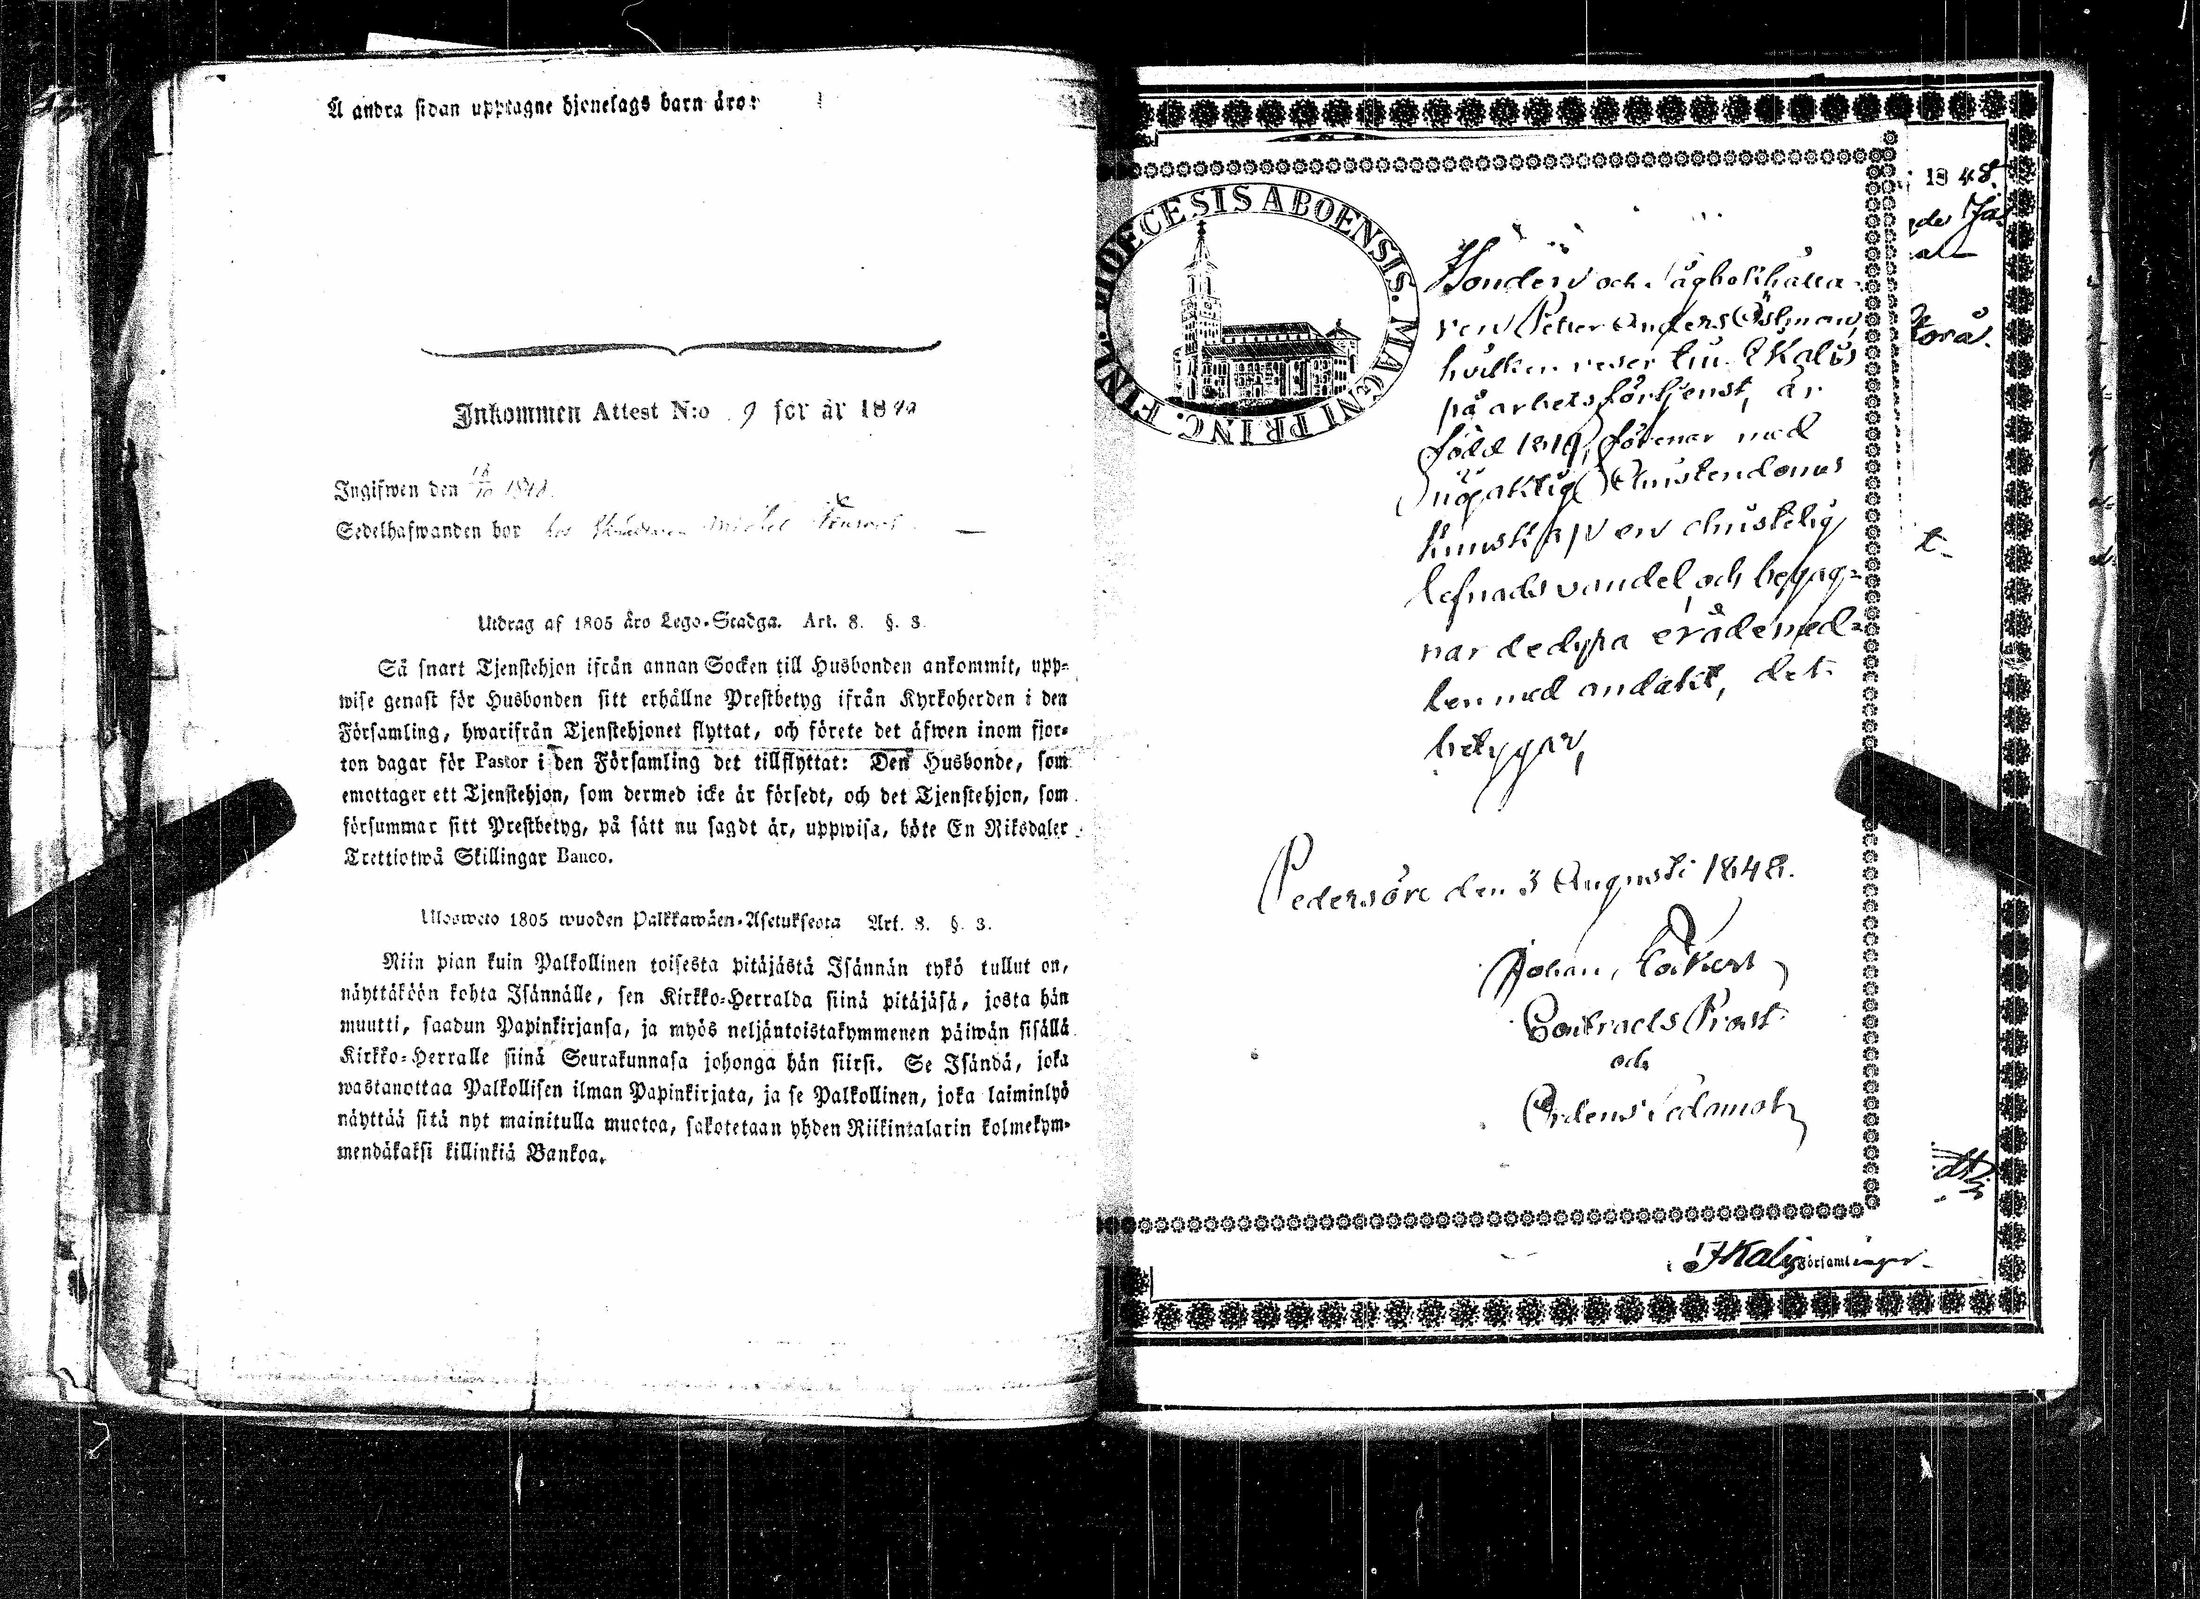 Å andra sidan upptagne hjonelags barn äro:
Inkommen Attest N:o 9 för år 18
Ingifwen den 18/10 1848.
Sedelhafwanden bor hos Michel
Utdrag af 1805 års Lego-Stadga. Art. 8. §. 3.
Så snart Tjenstehjon ifrån annan Socken till Husbonden ankommit, upp-
wise genast för Husbonden sitt erhållne Prestbetyg ifrån Kyrkoherden i den
Församling, hwarifrån Tjenstehjonet flyttat, och förete det äfwen inom fjor-
ton dagar för Pastor i den Församling det tillflyttat: Den Husbonde, som
emottager ett Tjenstehjon, som dermed icke är försedt, och det Tjenstehjon, som
försummar sitt Prestbetyg, på sätt nu sagdt är, uppwisa, böte En Riksdaler
Trettiotwå Skillingar Banco.
Ulosweto 1805 wuoden Palkkawäen-Asetuksesta Art. 8. §. 3.
Niin pian kuin Palkollinen toisesta pitäjästä Isännän tykö tullut on,
näyttäköön kohta Isännälle, sen Kirkko-Herralda siinä pitäjäsä, josta hän
muutti, saadun Papinkirjansa, ja myös neljäntoistakymmenen päiwän sisällä
Kirkko-Herralle siinä Seurakunnasa johonga hän siirsi. Se Isändä, joka
wastanottaa Palkollisen ilman Papinkirjata, ja se Palkollinen, joka laiminlyö
näyttää sitä nyt mainitulla muotoa, sakotetaan yhden Riikintalarin kolmekym-
mendäkaksi killinkiä Bankoa.
DIOECESIS ABOENSIS. MAGNI PRINC. FINL.
Bonden och
ren Petter Anders Östman,
hvilken reser till Kalis
på arbetsförtjenst, är
född 1819, förenar med
nöjaktig Christendoms
kunskap en christelig
lefnadsvandel och begag-
nar de dyra nådemed-
len med andakt, det
betygar,
Pedersöre den 3 Augusti 1848.
Johan
Contracts Prost
och
Ordens Ledamot
1848.
t-
Församlingar